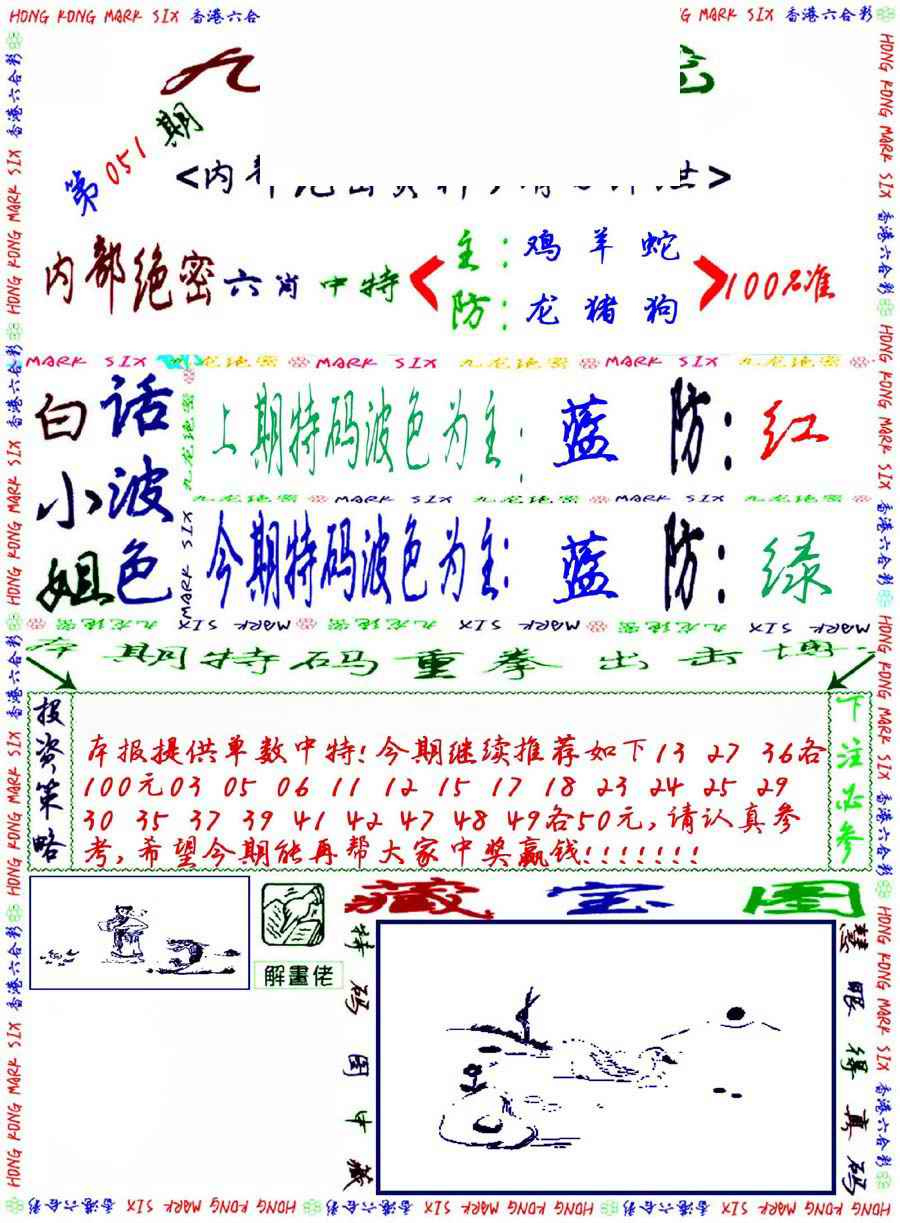 HONG KONG MARK SIX 香港六合彩
MARK SIX 香港六合彩
九
第051期
<内部
内部绝密六肖中特
主：鸡羊蛇
防：龙猪狗
100%准
MARK SIX 九龙绝密 MARK SIX 九龙绝密 MARK SIX 九龙绝密
白话
小波
姐色
上期特码波色为主：蓝 防：红
九龙绝密 MARK SIX 九龙绝密 MARK SIX 九龙绝密
今期特码波色为主：蓝 防：绿
九龙绝密 MARK SIX 九龙绝密 MARK SIX 九龙绝密 MARK SIX
本期特码重拳出击
投资策略
本报提供单数中特!今期继续推荐如下13 27 36各
100元03 05 06 11 12 15 17 18 23 24 25 29
30 35 37 39 41 42 47 48 49各50元,请认真参
考,希望今期能再帮大家中奖赢钱!!!!!!!
下注必参
解畫佬
藏宝图
特码图中藏
慧眼得真码
HONG KONG MARK SIX 香港六合彩